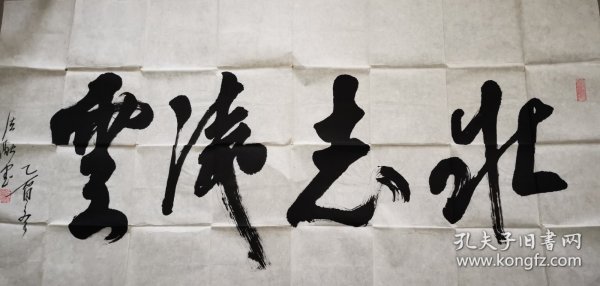 壮志凌雲
乙酉冬
孔夫子旧书网
www.kongfz.com